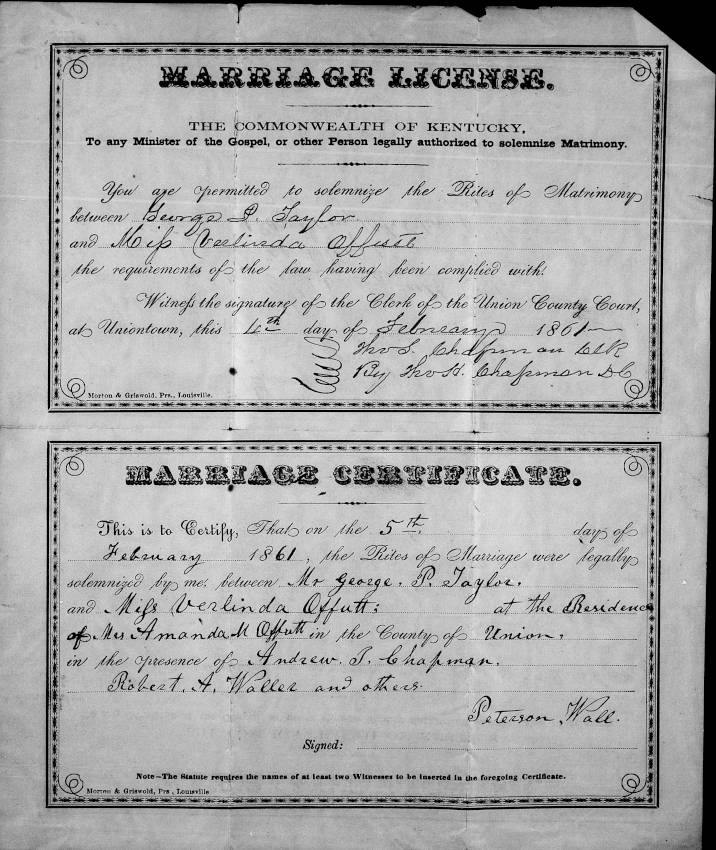 MARRIAGE LICENSE.
THE COMMONWEALTH OF KENTUCKY.
To any Minister of the Gospel, or other Person legally authorized to solemnize Matrimony.
You are permitted to solemnize the Rites of Matrimony
between George P. Taylor
and Miss Verlinda Offutt
the requirements of the law having been complied with.
Witness the signature of the Clerk of the Union County Court,
at Uniontown, this 4th day of February 1861
Thos. Chapman Clk
By Thos H. Chapman DC
Morton & Griswold, Prs., Louisville.
MARRIAGE CERTIFICATE.
This is to Certify, That on the 5th. day of
February 1861, the Rites of Marriage were legally
solemnized by me between Mr George. P. Taylor.
and Miss Verlinda Offutt; at the Residence
of Mrs Amanda M Offutt in the County of Union,
in the presence of Andrew. J. Chapman,
Robert. A. Waller and others.
Peterson, Wall.
Signed:
Note—The Statute requires the names of at least two Witnesses to be inserted in the foregoing Certificate.
Morton & Griswold, Prs., Louisville